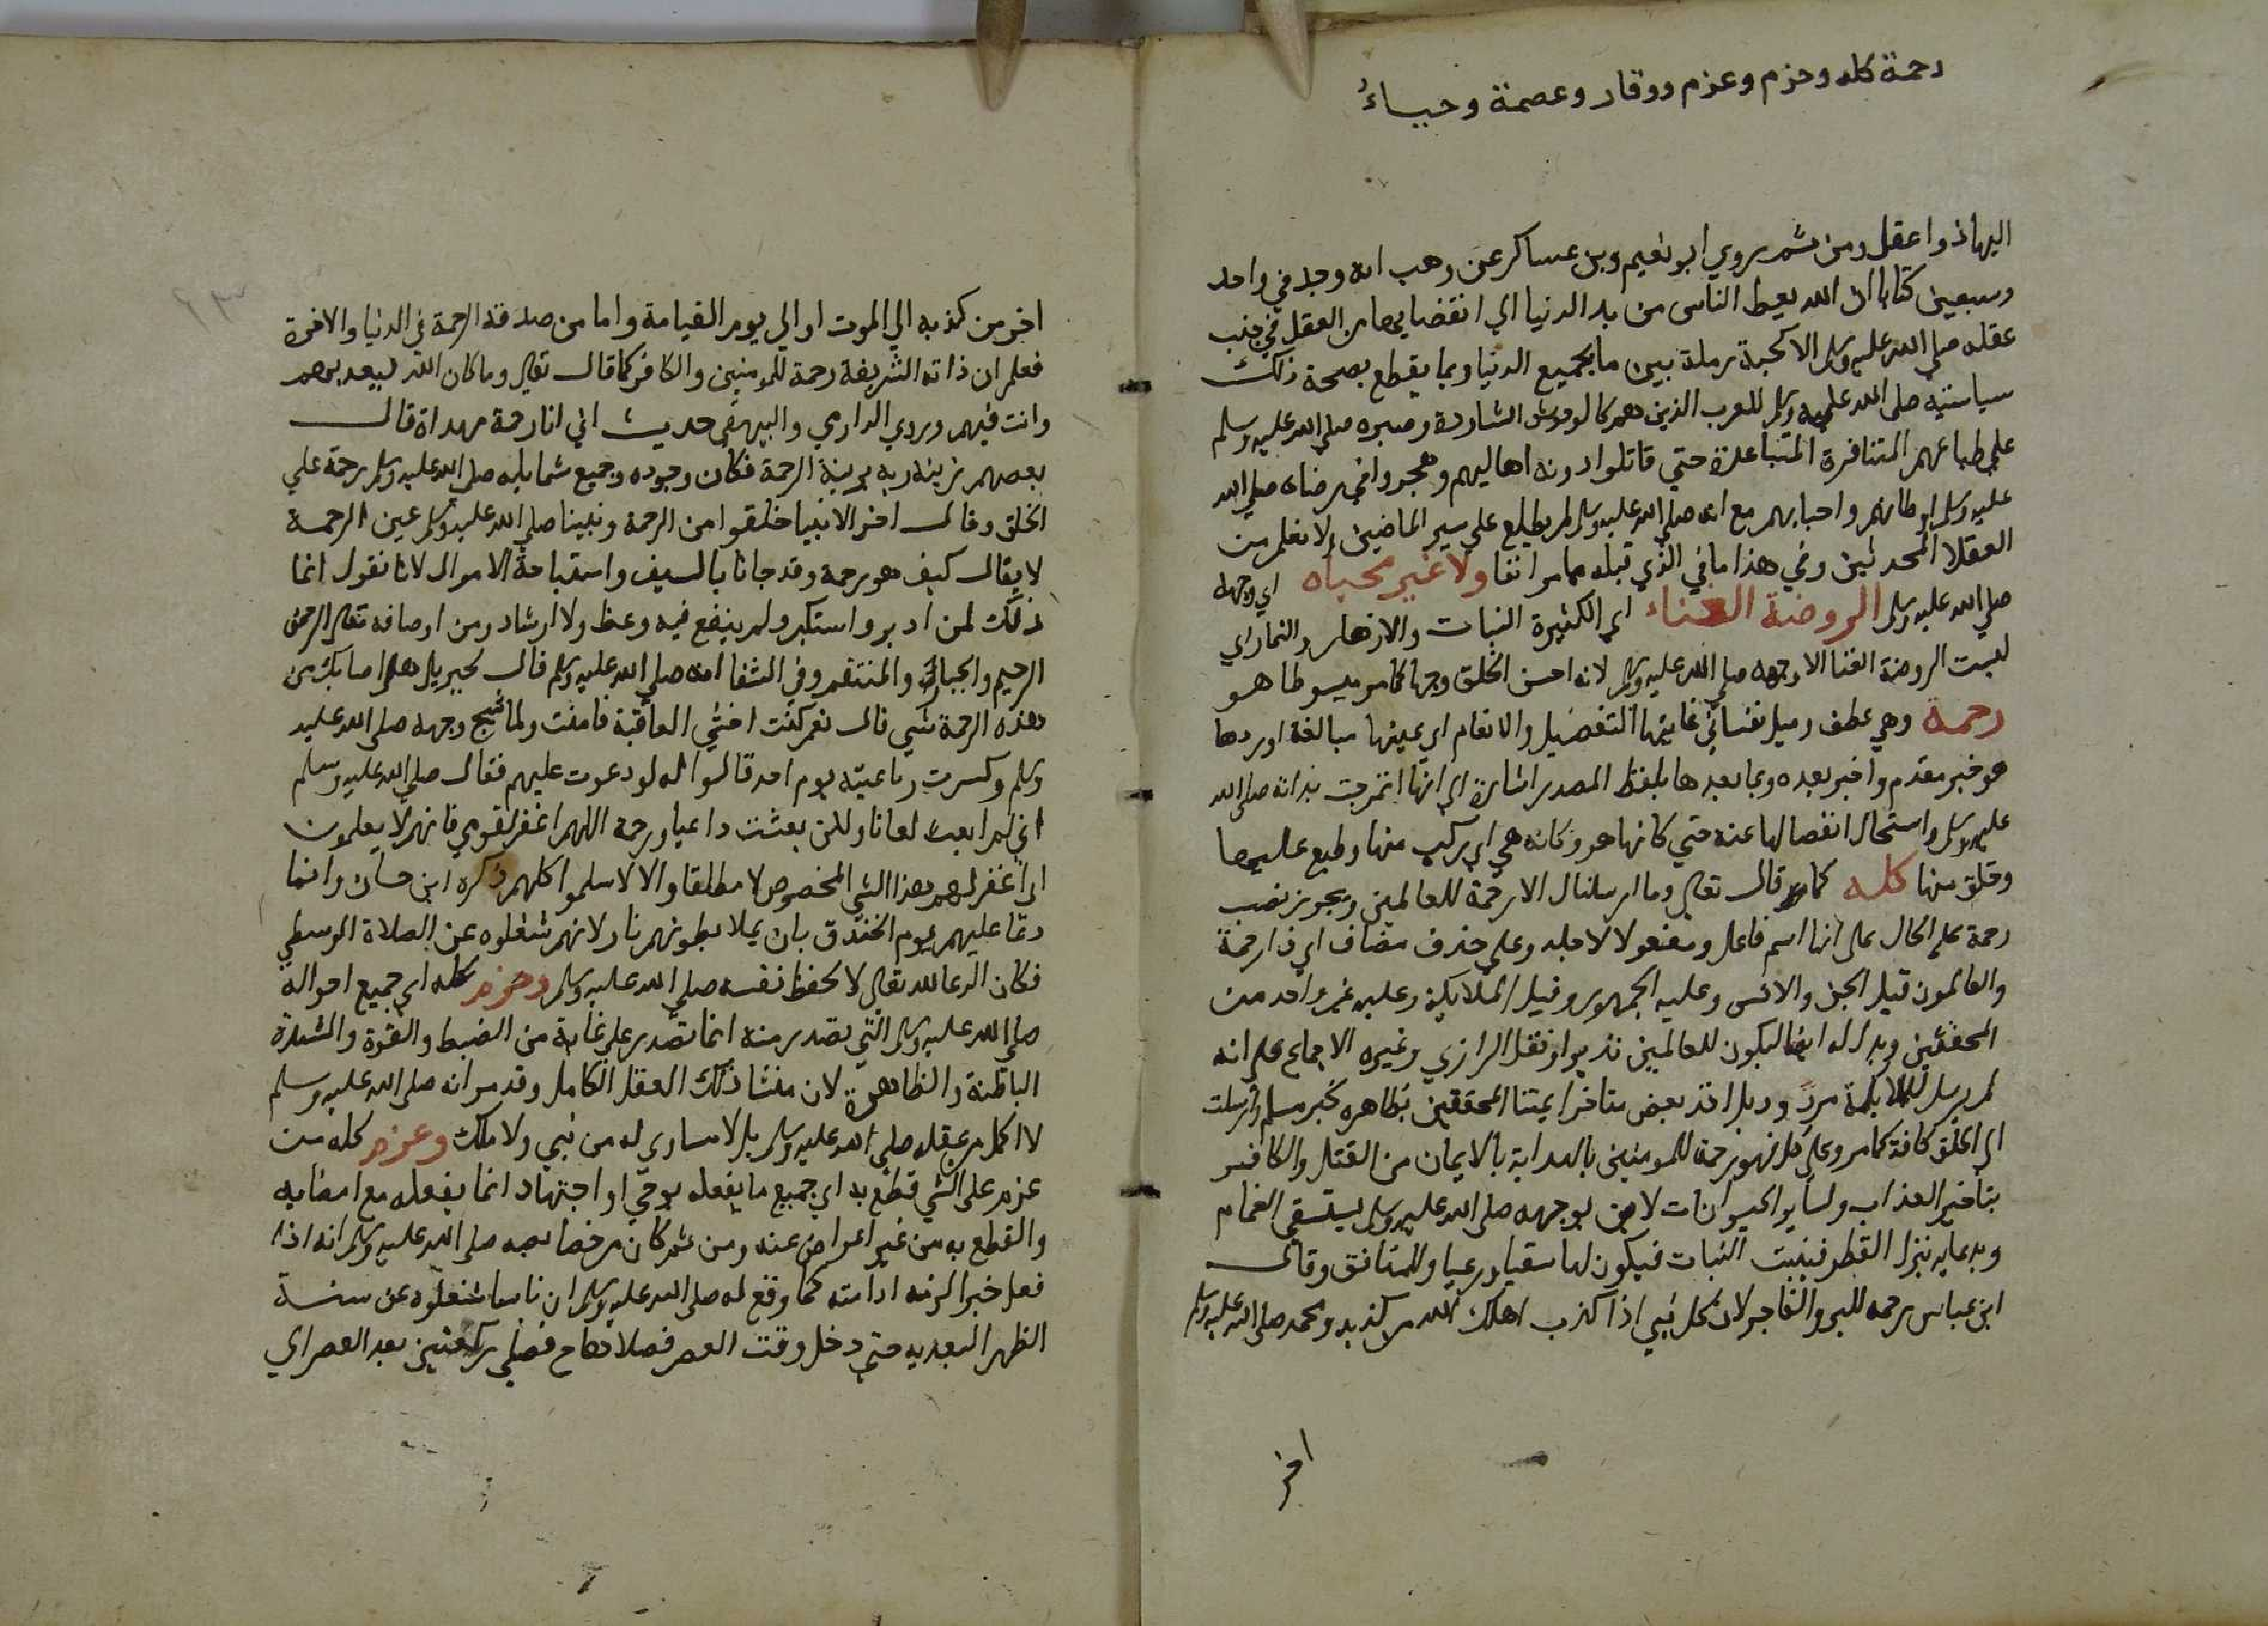 رحمة كله وحزم وعزم ووقار وعصمة وحياءُ
اليها ذوا عقل ومن ثم روي ابو نعيم وبن عساكر عن وهب انه وجد في واحد
وسبعين كتابا ان الله لم يعط الناس من بدء الدنيا الي انقضايها من العقل في جنب
عقله صلي الله عليه وسلم الا كحبة رملة بين ما بجميع الدنيا ومما يقطع بصحة ذلك
سياسته صلي الله عليه وسلم للعرب الذين هم كالوحوش الشاردة وصبره صلي الله عليه وسلم
علي طباعهم المتنافرة المتباعدة حتي قاتلوا دونه اهاليهم وهجروا في رضاه صلي الله
عليه وسلم اوطانهم واحبابهم مع انه صلي الله عليه وسلم لم يطلع علي سير الماضين ولا تعلم من
العقلا المحدثين وفي هذا ما في الذي قبله مما مر انفا ولا غير محياه اي وجهه
صلي الله عليه وسلم الروضة الغناء اي الكثيرة النبات والازهار والثمار اي
ليست الروضة الغنا الا وجهه صلي الله عليه وسلم لانه احسن الخلق وجها كما مر مبسوطا هو
رحمة وهي عطف وميل نفساني غايتها التفضيل والانعام اي عينها مبالغة اوردها
هو خبر مقدم واخبر بعده وبما بعدها بلفظ المصدر اشارة الي انها امتزجت بذاته صلي الله
عليه وسلم واستحال انفصالها عنه حتي كانها هو وكانه هي اي ركب منها وطبع عليها
وخلق منها كله كما قال تعالي وما ارسلناك الا رحمة للعالمين ويجوز نصب
رحمة علي الحال علي انها اسم فاعل ومفعولا لاجله وعلي حذف مضاف اي ذا رحمة
والعالمون قيل الجن والانس وعليه الجمهور وقيل الملايكة وعليه غير واحد من
المحققين ويدل له ايضا ليكون للعالمين نذيرا ونقل الرازي وغيره الاجماع علي انه
لم يرسل للملايكة مردود بل اخذ بعض متاخرا يمتنا المحققين بظاهر خبر مسلم وارسلت
الي الخلق كافة كما مر وعلي كل فهو رحمة للمومنين بالهداية بالايمان من القتل والكافر
بتاخير العذاب ولساير الحيوانات لامن بوجهه صلي الله عليه وسلم يستسقي الغمام
وبدعايه نزل القطر فنبت النبات فيكون لها سقيا ورعيا وللمنافق وقال
ابن عباس رحمه للبر والفاجر لان كل نبي اذا كذب اهلك الله من كذبه ومحمد صلي الله عليه وسلم
اخر
اخر من كذبه الي الموت او الي يوم القيامة واما من صدقه الرحمة في الدنيا والاخرة
فعلم ان ذاته الشريفة رحمة للمومنين والكافر كما قال تعالي وما كان الله ليعذبهم
وانت فيهم وروي الدارمي والبيهقي حديث اني انا رحمة مهداة قال
بعضهم زينه ربه بزينة الرحمة فكان وجوده وجميع شمايله صلي الله عليه وسلم رحمة علي
الخلق وقال اخر الانبيا خلقوا من الرحمة ونبينا صلي الله عليه وسلم عين الرحمة
لا يقال كيف هو رحمة وقد جانا بالسيف واستباحة الاموال لانا نقول انما
ذلك لمن ادبر واستكبر ولم ينفع فيه وعظ ولا ارشاد ومن اوصافه تعالي الرحمن
الرحيم والجبار والمنتقم وفي الشفا انه صلي الله عليه وسلم قال لجبريل هل اصابك من
هذه الرحمة شي قال نعم كنت اخشي العاقبة فامنت ولما شج وجهه صلي الله عليه
وسلم وكسرت رباعيته يوم احد قالوا له لو دعوت عليهم فقال صلي الله عليه وسلم
اني لم ابعث لعانا ولكن بعثت داعيا ورحمة اللهم اغفر لقومي فانهم لا يعلمون
اي اغفر لهم هذا الشي المخصوص لا مطلقا والا لاسلموا كلهم ذكره ابن حبان وانما
دعا عليهم يوم الخندق بان يملا بطونهم نارا لانهم شغلوه عن الصلاة الوسطي
فكان الدعا لله تعالي لا لحفظ نفسه صلي الله عليه وسلم وحزم كله اي جميع احواله
صلي الله عليه وسلم التي تصدر منه انما تصدر علي غاية من الضبط والقوة والشدة
الباطنة والظاهرة لان منشا ذلك العقل الكامل وقد مر انه صلي الله عليه وسلم
لا اكمل من عقله صلي الله عليه وسلم بل لا مساوي له من نبي ولا ملك وعزم كله من
عزم علي الشي قطع به اي جميع ما يفعله بوحي او اجتهاد انما يفعله مع امضايه
والقطع به من غير اعراض عنه ومن ثم كان من خصايصه صلي الله عليه وسلم انه اذا
فعل خيرا لزمه ادامته كما وقع له صلي الله عليه وسلم ان ناسا شغلوه عن سنة
الظهر البعدية حتي دخل وقت العصر فصلاها فصلي ركعتين بعد العصر اي